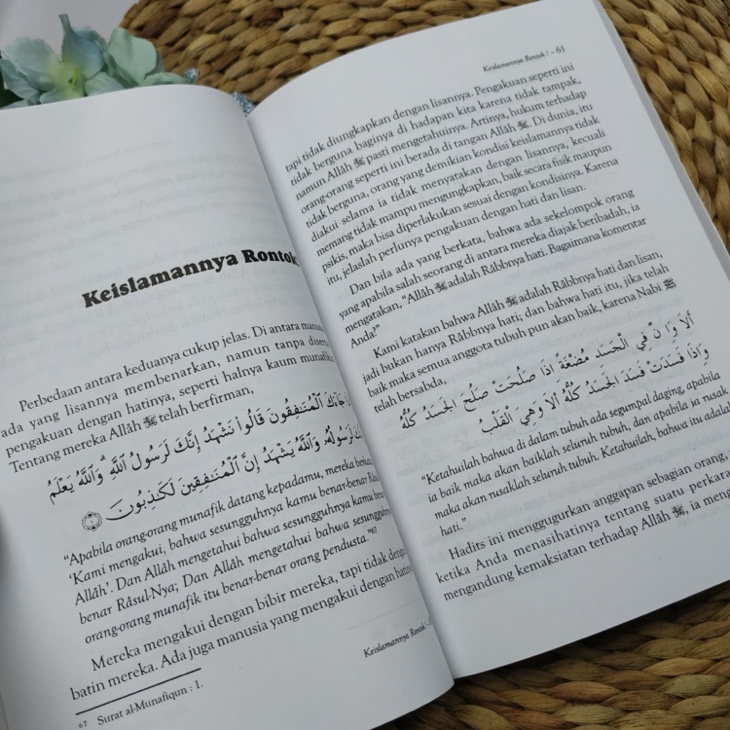 Keislamannya Rontok
Perbedaan antara keduanya cukup jelas. Di antara
ada yang lisannya membenarkan, namun tanpa
pengakuan dengan hatinya, seperti halnya kaum munafik
Tentang mereka Allâh ﷻ telah berfirman,
جَآءَكَ ٱلْمُنَٰفِقُونَ قَالُوا۟ نَشْهَدُ إِنَّكَ لَرَسُولُ ٱللَّهِ ۗ وَٱللَّهُ يَعْلَمُ
إِنَّكَ لَرَسُولُهُۥ وَٱللَّهُ يَشْهَدُ إِنَّ ٱلْمُنَٰفِقِينَ لَكَٰذِبُونَ ١
“Apabila orang-orang munafik datang kepadamu, mereka
‘Kami mengakui, bahwa sesungguhnya kamu benar-benar
Allâh’. Dan Allâh mengetahui bahwa sesungguhnya kamu
benar Râsul-Nya; Dan Allâh mengetahui bahwa
orang-orang munafik itu benar-benar orang pendusta.”67
Mereka mengakui dengan bibir mereka, tapi tidak dengan
batin mereka. Ada juga manusia yang mengakui dengan
67 Surat al-Munafiqun : 1.
Keislamannya Rontok !
Keislamannya Rontok ! - 61
tapi tidak diungkapkan dengan lisannya. Pengakuan seperti ini
tidak berguna baginya di hadapan kita karena tidak tampak,
namun Allâh ﷻ pasti mengetahuinya. Artinya, hukum terhadap
orang-orang seperti ini berada di tangan Allâh ﷻ. Di dunia, itu
tidak berguna, orang yang demikian kondisi keislamannya tidak
diakui selama ia tidak menyatakan dengan lisannya, kecuali
memang tidak mampu mengungkapkan, baik secara fisik maupun
psikis, maka bisa diperlakukan sesuai dengan kondisinya. Karena
itu, jelaslah perlunya pengakuan dengan hati dan lisan.
Dan bila ada yang berkata, bahwa ada sekelompok orang
yang apabila salah seorang di antara mereka diajak beribadah, ia
mengatakan, “Allâh ﷻ adalah Râbbnya hati. Bagaimana komentar
Anda?”
Kami katakan bahwa Allâh ﷻ adalah Râbbnya hati dan lisan,
jadi bukan hanya Râbbnya hati; dan bahwa hati itu, jika telah
baik maka semua anggota tubuh pun akan baik, karena Nabi ﷺ
telah bersabda,
أَلاَ وَإِنَّ فِي الْجَسَدِ مُضْغَةً إِذَا صَلَحَتْ صَلَحَ الْجَسَدُ كُلُّهُ
وَإِذَا فَسَدَتْ فَسَدَ الْجَسَدُ كُلُّهُ أَلاَ وَهِيَ الْقَلْبُ
“Ketahuilah bahwa di dalam tubuh ada segumpal daging, apabila
ia baik maka akan baiklah seluruh tubuh, dan apabila ia rusak
maka akan rusaklah seluruh tubuh. Ketahuilah, bahwa itu adalah
hati.”
Hadits ini menggugurkan anggapan sebagian orang,
ketika Anda menasihatinya tentang suatu perkara
mengandung kemaksiatan terhadap Allâh ﷻ, ia